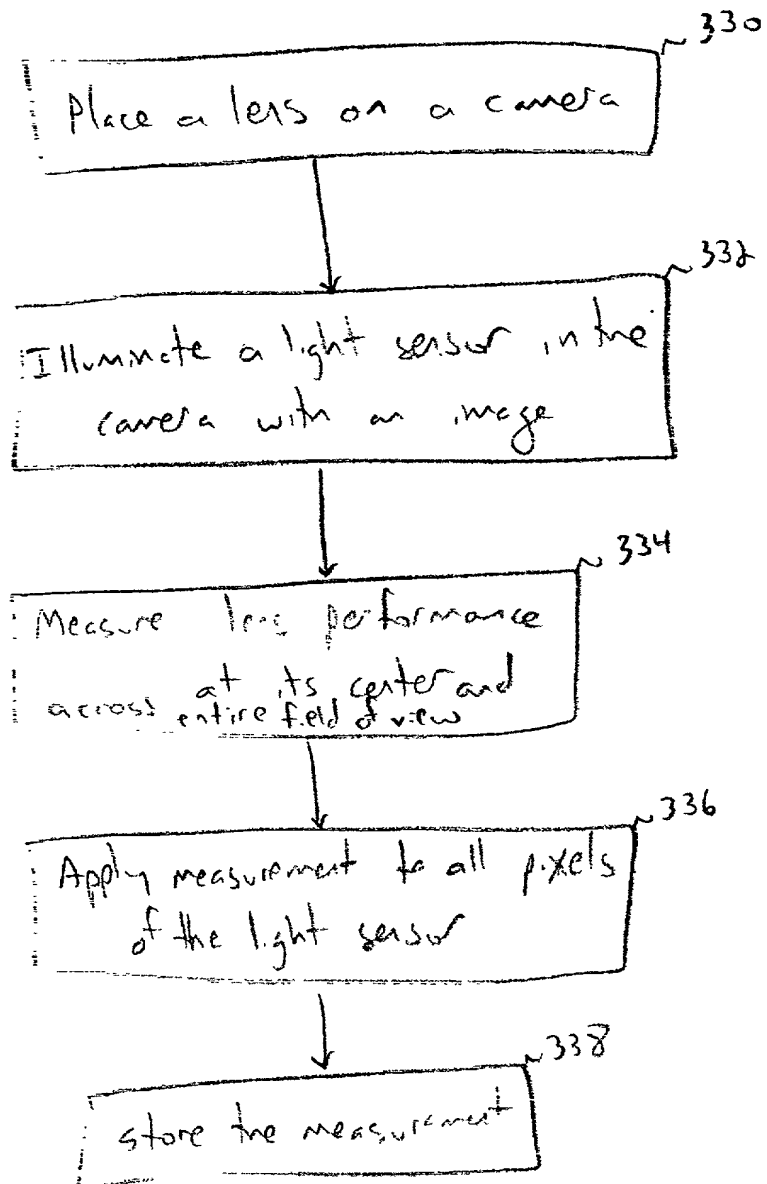 330
Place a lens on a camera
332
Illuminate a light sensor in the
camera with an image
334
Measure lens performance
across at its center and
entire field of view
336
Apply measurement to all pixels
of the light sensor
338
store the measurement